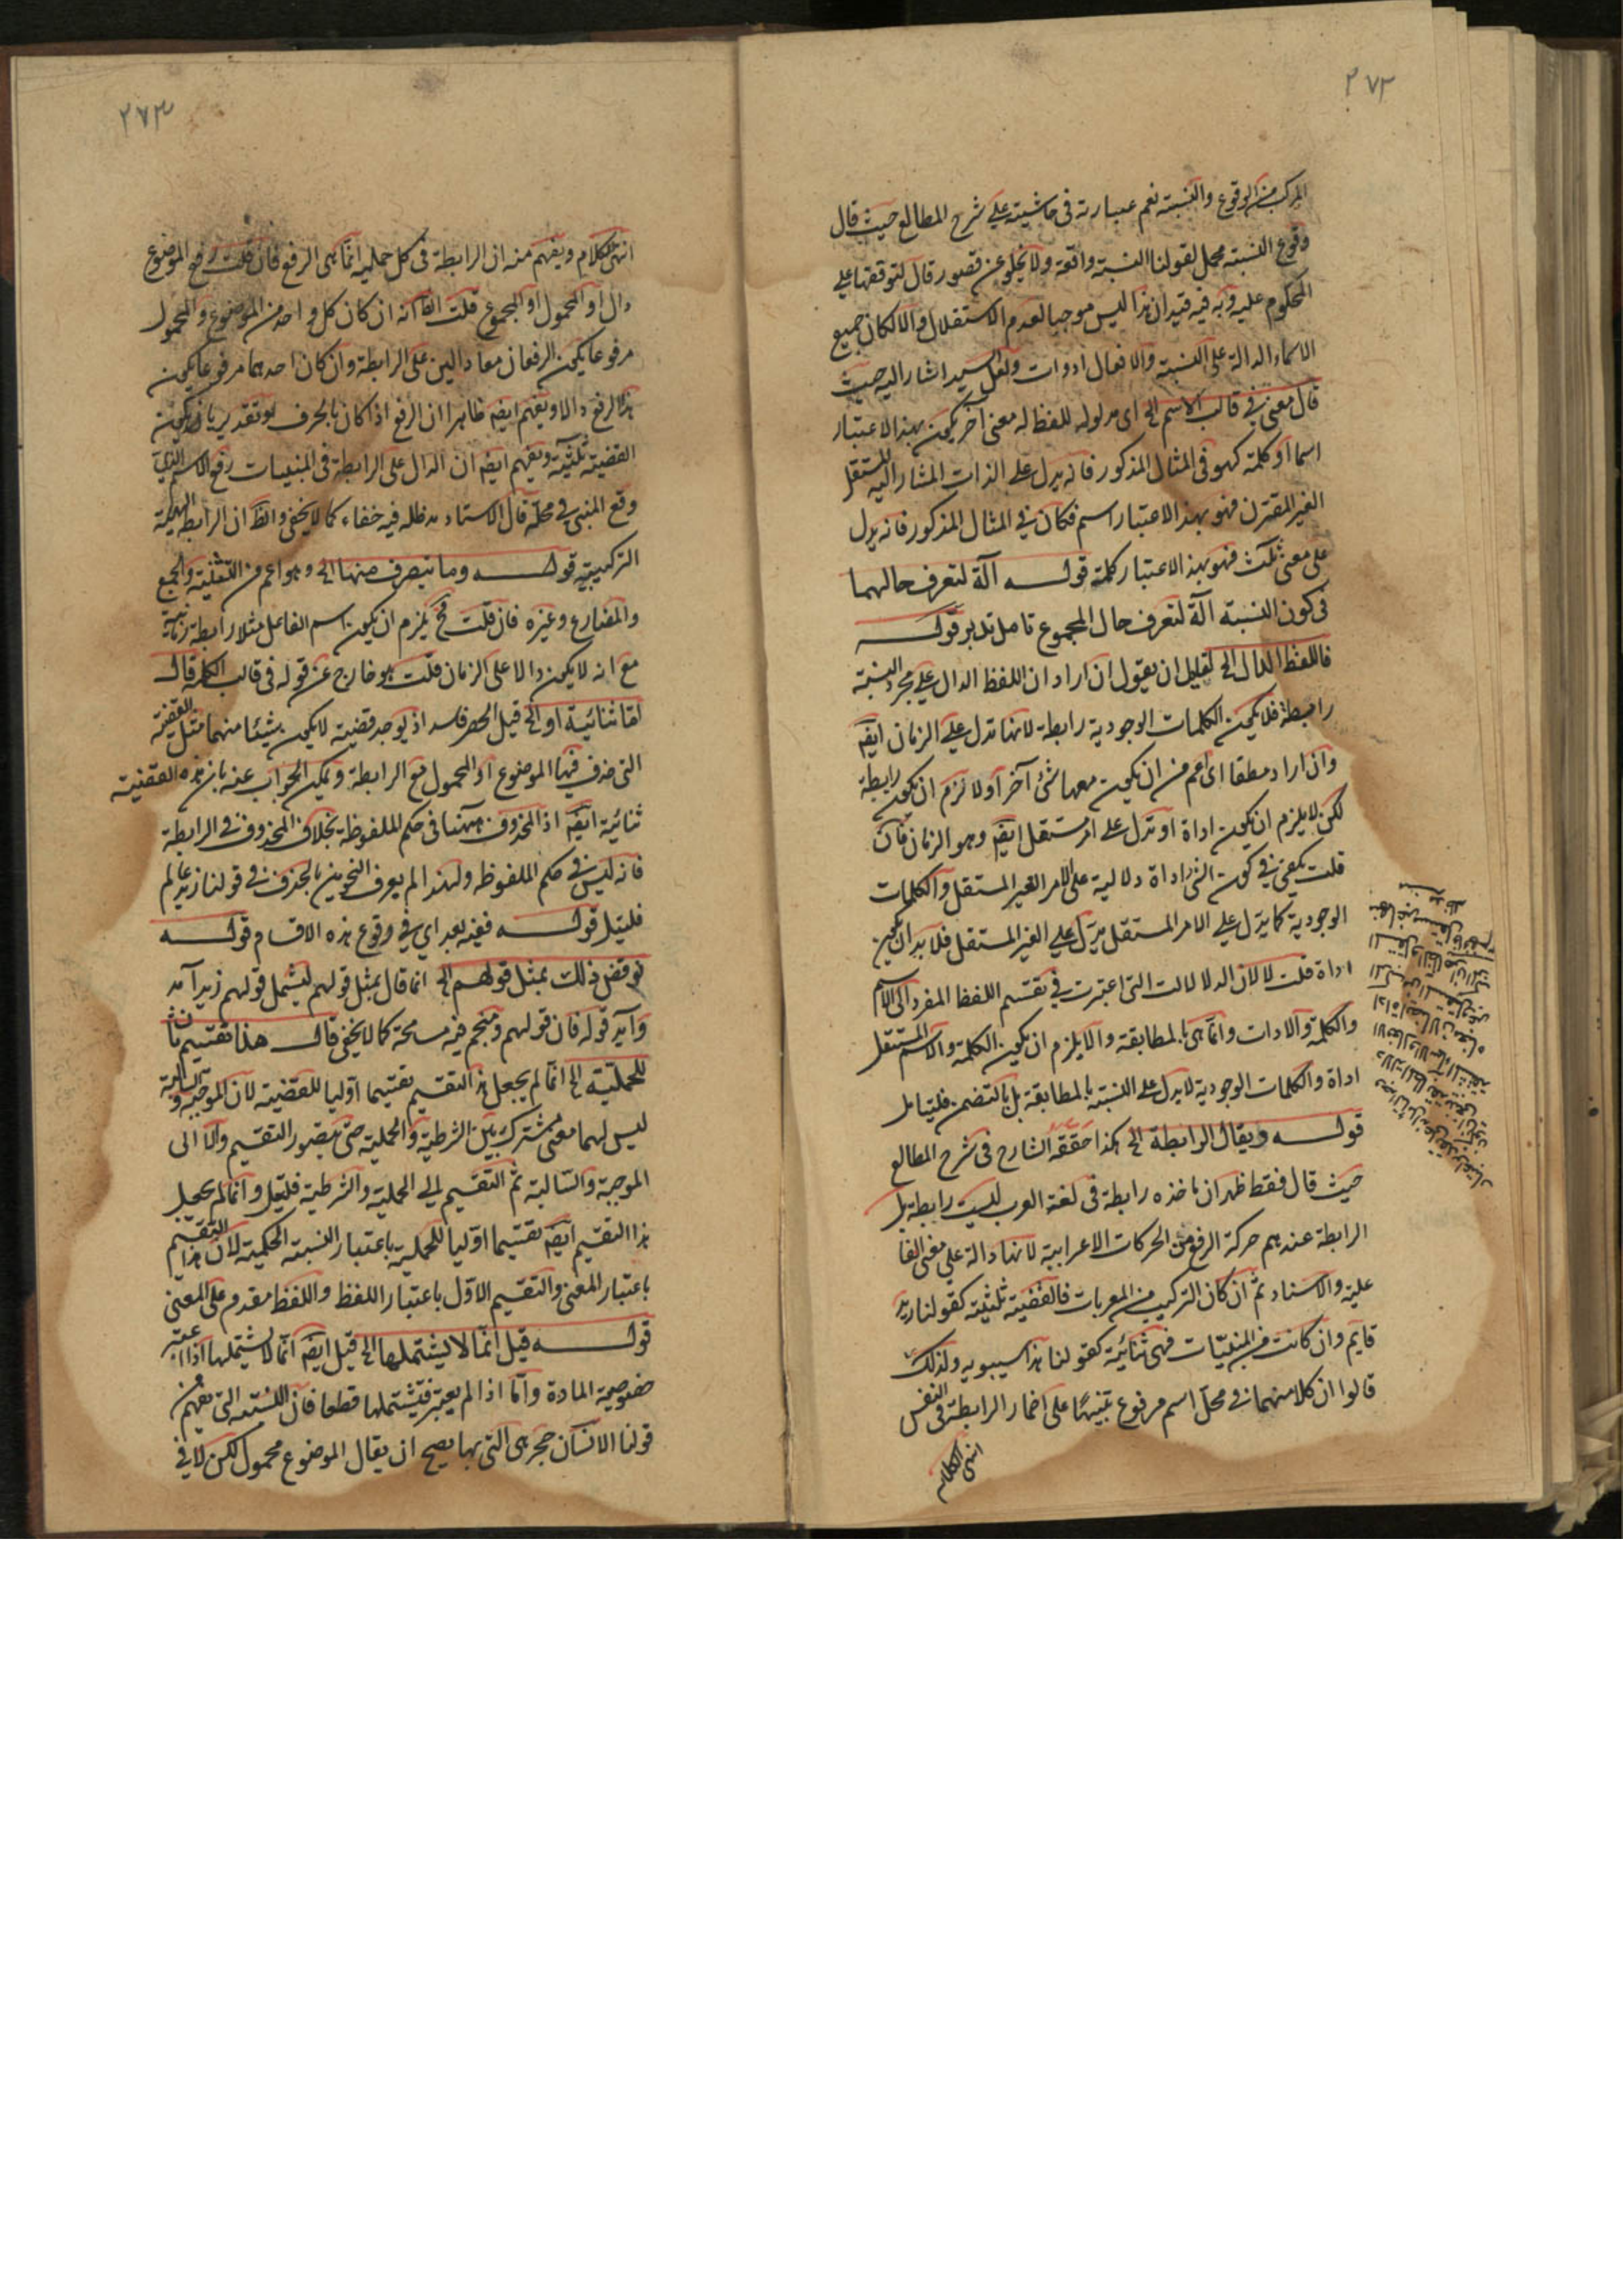 ٢٧٢
المركب من الوقوع والنسبة نعم عبارته في حاشيته على شرح المطالع حيث قال
وقوع النسبة مجمل لقولنا النسبة واقعة ولا يخلو عن قصور قال لتوقفها على
المحكوم عليه وبه فيه قيد ان هذا ليس موجبا لعدم الاستقلال والا لكان جميع
الاسماء الدالة على النسبة والافعال ادوات ولعل السيد اشار اليه حيث
قال معنى في قالب الاسم الخ اى مدلوله للفظ له معنى آخر يكون بهذا الاعتبار
اسما او كلمة كهو في المثال المذكور فانه يدل على الذات المشار اليه المستقل
الغير المقترن فهو بهذا الاعتبار اسم فكان في المثال المذكور فانه يدل
على معنى ثلث فهو بهذا الاعتبار كلمة قوله آلة لتعرف حالهما
في كون النسبة آلة لتعرف حال المجموع تامل تدبر قوله
فاللفظ الدال الخ لقايل ان يقول ان اراد ان اللفظ الدال على مجرد النسبة
رابطة فلا يكون الكلمات الوجودية رابطة لانها تدل على الزمان ايضا
وان اراد مطلقا اى اعم من ان يكون معها شئ آخر اولا لزم ان يكون رابطة
لكن لا يلزم ان يكون اداة او تدل على امر مستقل ايضا وهو الزمان فان
قلت يكفى في كون الشئ اداة دلالية على الامر الغير المستقل والكلمات
الوجودية كما يدل على الامر المستقل يدل على الغير المستقل فلا بد ان يكون
اداة قلت لا لان الدلالات التى اعتبرت في تقسيم اللفظ المفرد الى الاسم
والكلمة والادات وانما هى بالمطابقة والا يلزم ان يكون الكلمة والاسم المستقل
اداة والكلمات الوجودية لا يدل على النسبة بالمطابقة بل بالتضمن فليتامل
قوله ويقال الرابطة الخ هكذا حققه الشارح في شرح المطالع
حيث قال فقط ظهر ان ماخذه رابطة في لغة العرب ليست رابطة بل
الرابطة عندهم حركة الرفع من الحركات الاعرابية لانها دالة على معنى الفا
علية والاسناد ثم ان كان التركيب من المعربات فالقضية ثلثية كقولنا زيد
قايم وان كانت من المبنيات فهى ثنائية كقولنا هذا سيبويه ولذلك
قالوا ان كلا منهما في محل اسم مرفوع تنبيها على اضمار الرابطة في النفس
انتهى الكلام
٢٧٣
انتهى الكلام ويفهم منه ان الرابطة في كل حملية انما هى الرفع فان قلت رفع الموضوع
دال او المحمول او المجموع قلت الظ انه ان كان كل واحد من الموضوع والمحمول
مرفوعا يكون الرفعان معا دالين على الرابطة وان كان احدهما مرفوعا يكون
هذا الرفع دالا ويفهم ايضا ظاهرا ان الرفع اذا كان بالحرف او تقديريا يكون
القضية ثلثية ويفهم ايضا ان الدال على الرابطة في المبنيات رفع الاسم الذى
وقع المبنى في محله قال الاستاد مدظله فيه خفاء كما لا يخفى والظ ان الرابطة الهيئة
التركيبية قوله وما يتصرف منها الخ وهو اعم من التثنية والجمع
والمضارع وغيره فان قلت فح يلزم ان يكون اسم الفاعل مثلا رابطة زمانية
مع انه لا يكون دالا على الزمان قلت هو خارج عن قوله في قالب الكلمة قال
اما ثنائية او الخ قيل الحصر فاسد اذ يوجد قضية لا يكون شيئا منهما مثل القضية
التى حذف فيها الموضوع او المحمول مع الرابطة ويمكن الجواب عنه بان هذه القضية
ثنائية ايضا اذ المحذوف ههنا في حكم الملفوظة بخلاف المحذوف في الرابطة
فانه ليس في حكم الملفوظه ولهذا لم يعرف النحويين بالحذف في قولنا زيد عالم
فليتامل قوله ففيه بعد اى في وقوع هذه الاقسام قوله
نوقض ذلك بمثل قولهم الخ انما قال بمثل قولهم ليشمل قولهم زيد آمد
وآيد قوله فان قولهم ومنجم فيه مسامحة كما لا يخفى قال هذا تقسيم ثان
للحملية الخ انما لم يجعل هذا التقسيم تقسيما اوليا للقضية لان الموجبة والسالبة
ليس لهما معنى مشترك بين الشرطية والحملية حتى يتصور التقسيم والا الى
الموجبة والسالبة ثم التقسيم الى الحملية والشرطية فليتامل وانما لم يجعل
هذا التقسيم ايضا تقسيما اوليا للحملية باعتبار النسبة الحكمية لان هذا التقسيم
باعتبار المعنى والتقسيم الاول باعتبار اللفظ واللفظ مقدم على المعنى
قوله قيل انما لا يشتملها الخ قيل ايضا انما لا يشتملها اذا اعتبر
خصوصية المادة واما اذا لم يعتبر فيشتملها قطعا فان النسبة التى يفهم من
قولنا الانسان حجر هى التى بها يصح ان يقال الموضوع محمول لكن لا في